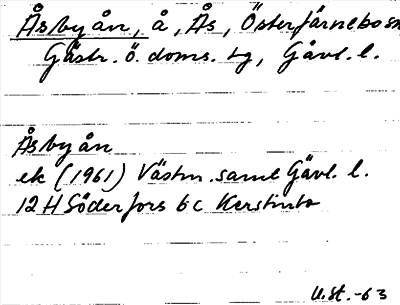 Åsbyån, å, Ås, Österfärnebo sn
Gästr. ö. doms. tg, Gävl. l.
Åsbyån
ek (1961) Västm. samt Gävl. l.
12 H Söderfors 6 c Kerstinbo
U.St. -63